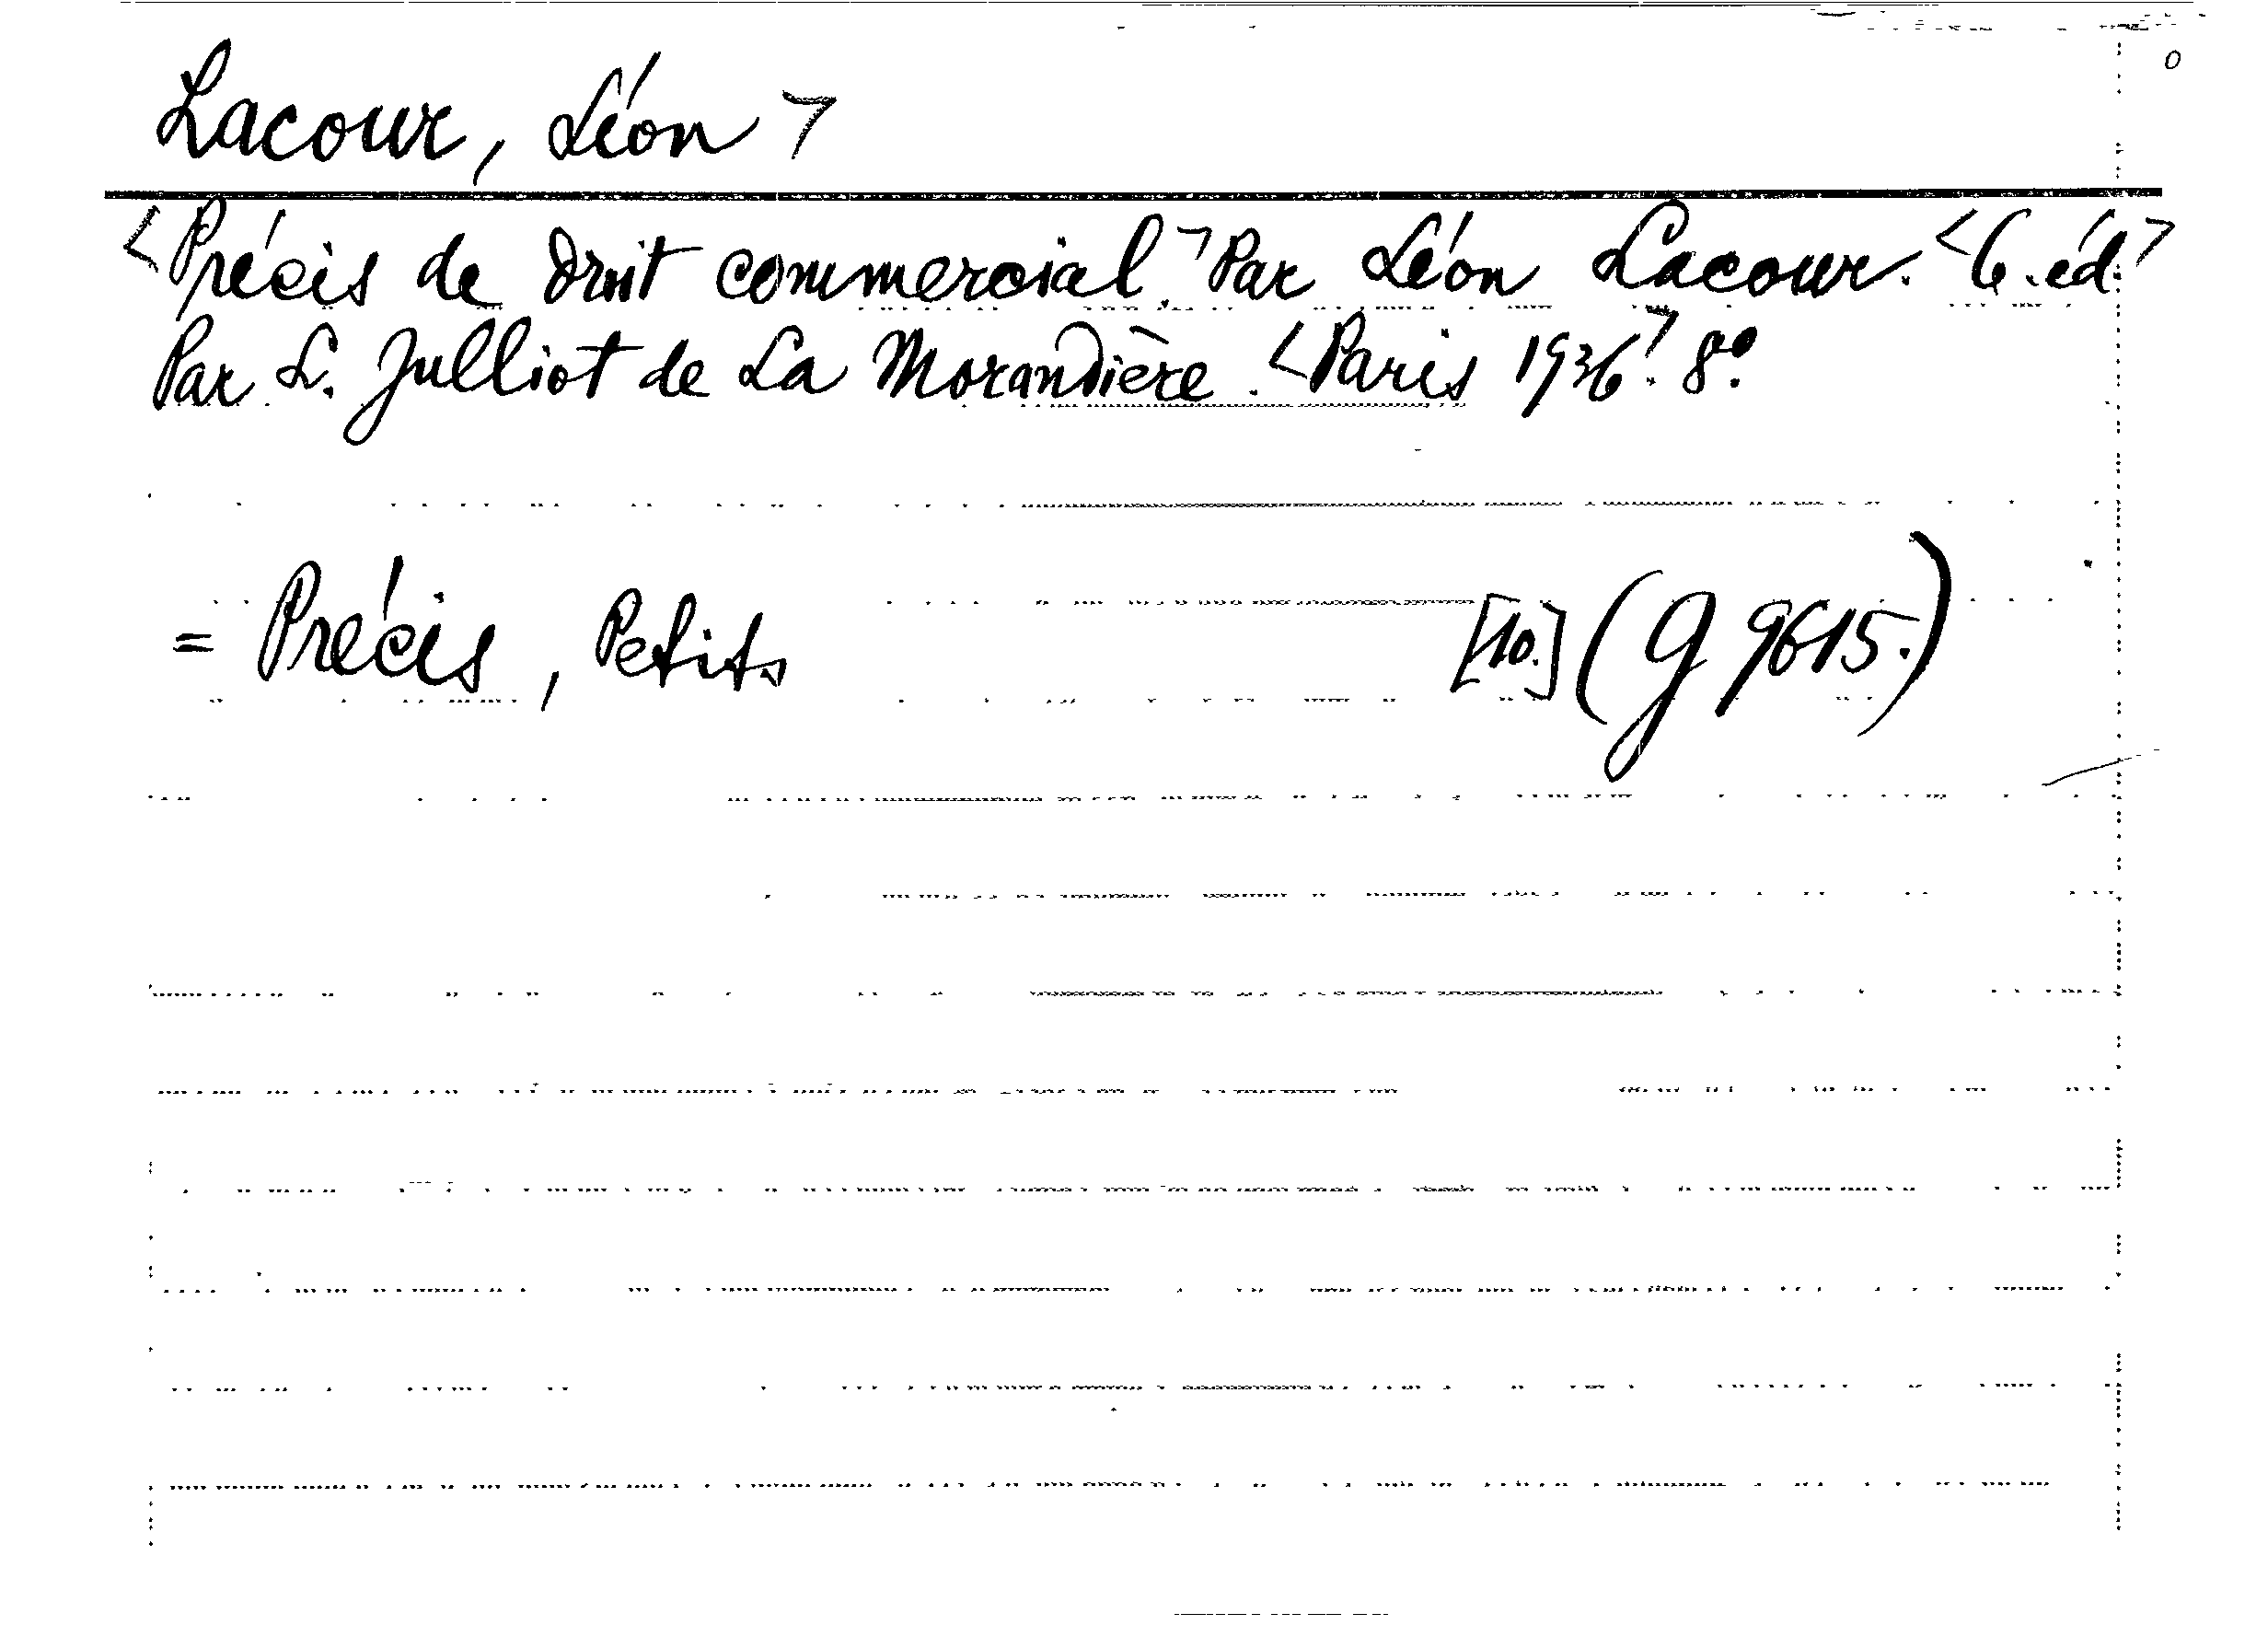 Lacour, Léon >
<Précis de droit commercial.> Par Léon Lacour. <6. éd.>
Par L. Julliot de La Morandière. <Paris 1936>. 8°.
= Précis, Petits [10.] (G 9615.)